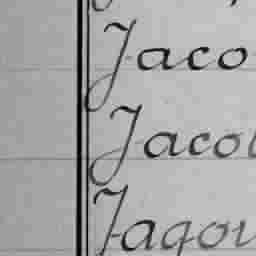 Jaco
Jacob
Jagow